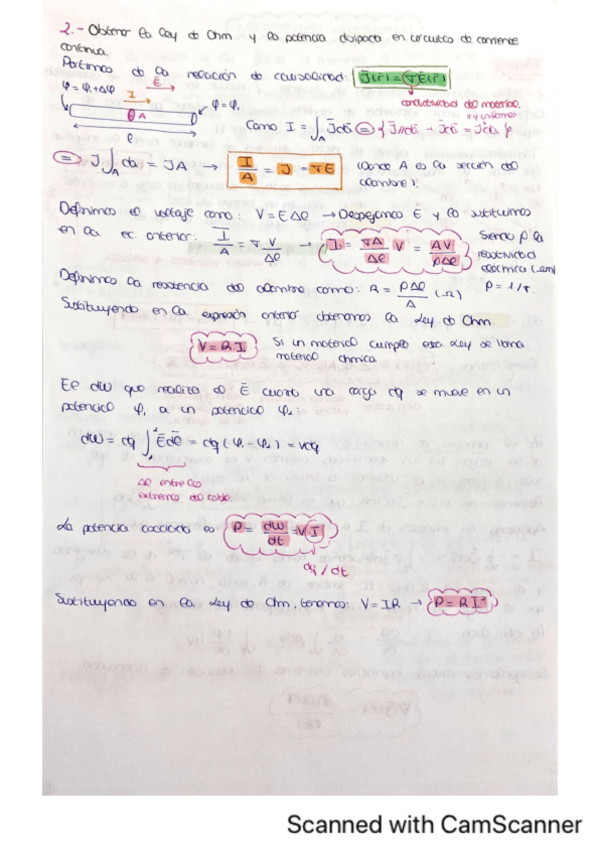 2.- Obtener la Ley de Ohm y la potencia disipada en circuitos de corriente
continua.
Partimos de la relación de causalidad: J̄(r̄) = σĒ(r̄)
conductividad del material.
φ = φ₁ + Δφ Ē I A φ = φ₁ ℓ
Como I = ∫_A J̄dā = { J̄ // dā → J̄dā = Jda }
= J ∫_A da = JA → I/A = J = σE (donde A es la sección del
alambre).
Definimos el voltaje como: V = EΔℓ → Despejamos E y lo sustituimos
en la ec. anterior: I/A = σ V/Δℓ → I = σA/Δℓ V = AV/ρΔℓ
Siendo ρ la
resistividad
eléctrica (Ωm)
ρ = 1/σ.
Definimos la resistencia del alambre como: R = ρΔℓ/A (Ω)
Sustituyendo en la expresión anterior obtenemos la Ley de Ohm.
V = R·I
Si un material cumple esa Ley se llama
material óhmico
El dW que realiza el Ē cuando una carga dq se mueve en un
potencial φ₁ a un potencial φ₂:
dW = dq ∫₁² Ēdℓ̄ = dq (φ₁ - φ₂) = Vdq
Δφ entre los
extremos del cable.
La potencia asociada es P = dW/dt = VI
dq / dt
Sustituyendo en la Ley de Ohm, tenemos: V = IR → P = RI²
Scanned with CamScanner